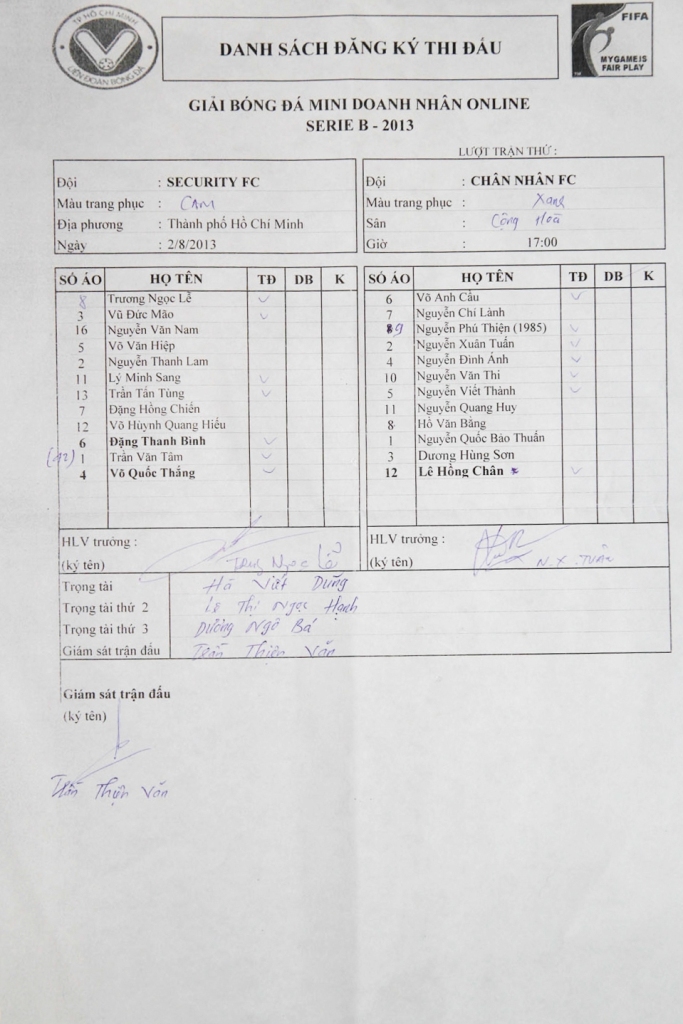 TP HỒ CHÍ MINH
LIÊN ĐOÀN BÓNG ĐÁ
DANH SÁCH ĐĂNG KÝ THI ĐẤU
FIFA
MY GAME IS
FAIR PLAY
GIẢI BÓNG ĐÁ MINI DOANH NHÂN ONLINE
SERIE B - 2013
LƯỢT TRẬN THỨ :
Đội : SECURITY FC
Màu trang phục : CAM
Địa phương : Thành phố Hồ Chí Minh
Ngày : 2/8/2013
Đội : CHÂN NHÂN FC
Màu trang phục : Xanh
Sân : Cộng Hoà
Giờ : 17:00
SỐ ÁO HỌ TÊN TĐ DB K
8 Trương Ngọc Lễ ✓
3 Vũ Đức Mão ✓
16 Nguyễn Văn Nam
5 Võ Văn Hiệp
2 Nguyễn Thanh Lam
11 Lý Minh Sang ✓
13 Trần Tấn Tùng ✓
7 Đặng Hồng Chiến
12 Võ Huỳnh Quang Hiếu
6 Đặng Thanh Bình ✓
(12) 1 Trần Văn Tâm ✓
4 Võ Quốc Thắng ✓
HLV trưởng :
(ký tên) Trương Ngọc Lễ
SỐ ÁO HỌ TÊN TĐ DB K
6 Võ Anh Cầu ✓
7 Nguyễn Chí Lành
9 Nguyễn Phú Thiện (1985) ✓
2 Nguyễn Xuân Tuấn ✓
4 Nguyễn Đình Ánh ✓
10 Nguyễn Văn Thi ✓
5 Nguyễn Viết Thành ✓
11 Nguyễn Quang Huy
8 Hồ Văn Bằng
1 Nguyễn Quốc Bảo Thuẩn
3 Dương Hùng Sơn
12 Lê Hồng Chân ✓
HLV trưởng :
(ký tên) N.X.TUẤN
Trọng tài Hà Việt Dũng
Trọng tài thứ 2 Lê Thị Ngọc Hạnh
Trọng tài thứ 3 Dương Ngô Bá
Giám sát trận đấu Trần Thiện Văn
Giám sát trận đấu
(ký tên)
Trần Thiện Văn